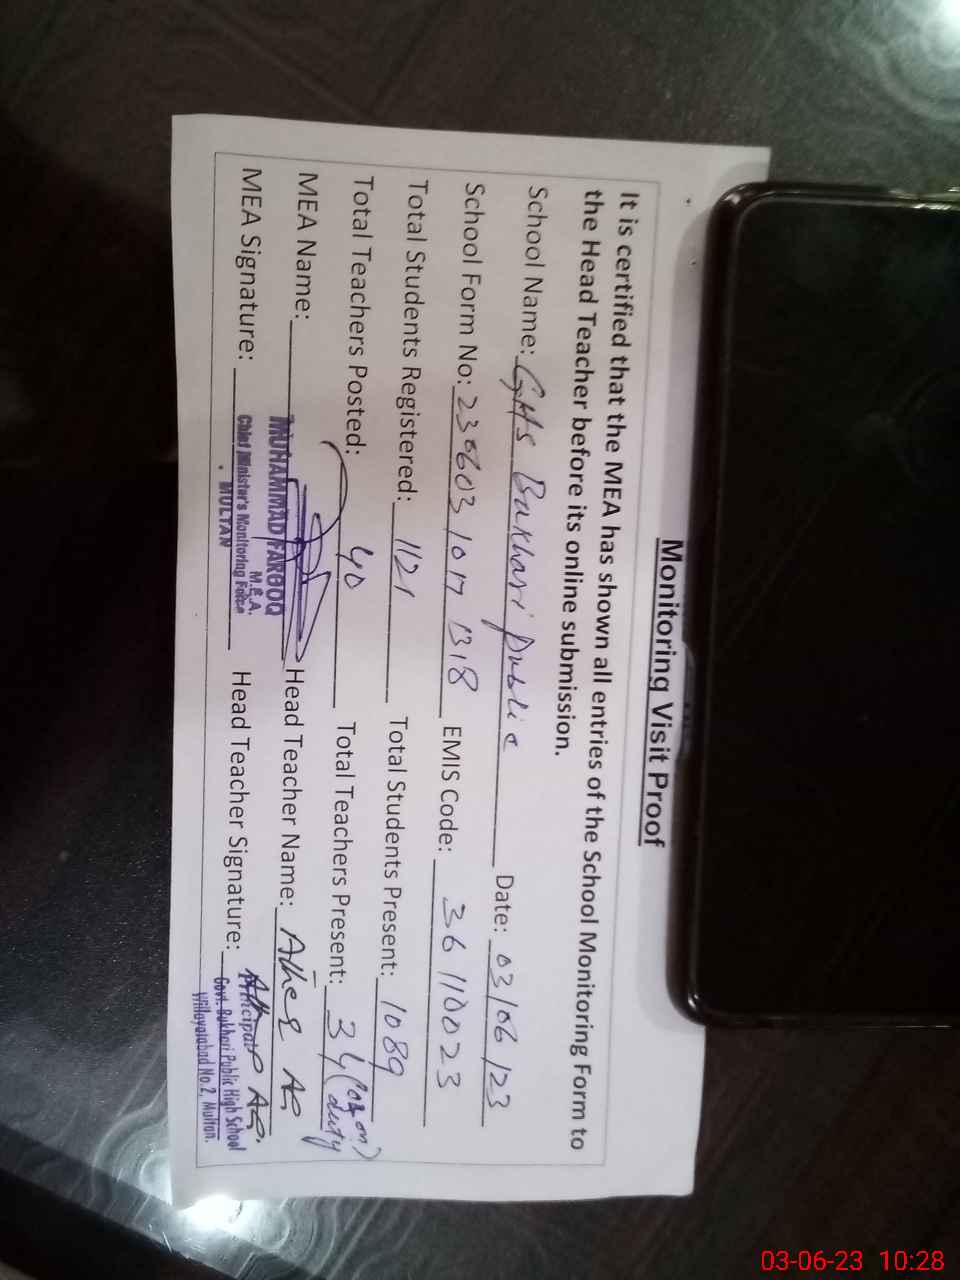 Monitoring Visit Proof
It is certified that the MEA has shown all entries of the School Monitoring Form to
the Head Teacher before its online submission.
School Name: GHS Bukhari Public Date: 03/06/23
School Form No: 230603 1017 1318 EMIS Code: 36110023
Total Students Registered: 1121 Total Students Present: 1089
Total Teachers Posted: 40 Total Teachers Present: 34 (on duty)
MEA Name: MUHAMMAD FAROOQ Head Teacher Name: Ather
M.E.A.
MEA Signature: Chief Minister's Monitoring Force Head Teacher Signature:
MULTAN
Principal
Govt. Bukhari Public High School
Willayatabad No.2, Multan.
03-06-23 10:28